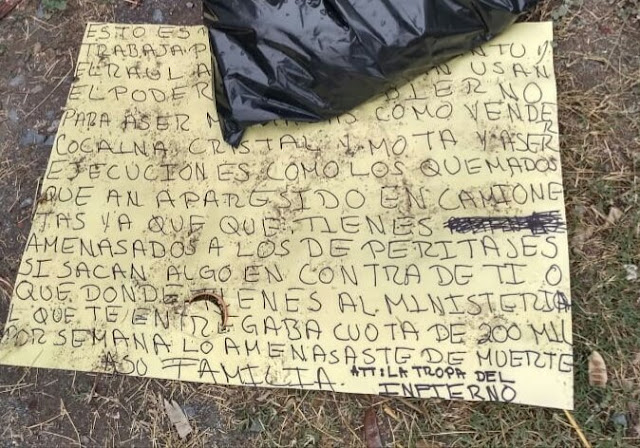 ESTO ES
TRABAJA P NTU Y
EL RAUL A N USAN
EL PODER BIERNO
PARA ASER M S COMO VENDE
COCAINA CRISTAL Y MOTA Y ASER
EJECUCIONES COMO LOS QUEMADOS
QUE AN APARESIDO EN CAMIONE
TAS YA QUE QUE TIENES
AMENASADOS A LOS DE PERITAJES
SI SACAN ALGO EN CONTRA DE TI O
QUE DONDE TIENES AL MINISTERIA
L QUE TE ENTRIGABA CUOTA DE 200 MIL
POR SEMANA LO AMENASASTE DE MUERTE
A SU FAMILIA. ATTI LA TROPA DEL
INFIERNO